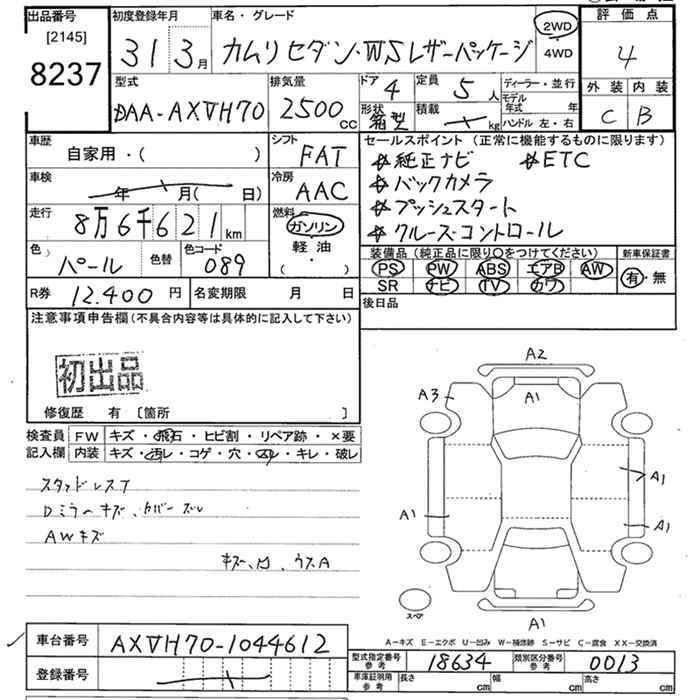 出品番号
[2145]
8237
初度登録年月
31 3月
車名・グレード
カムリセダン・WSレザーパッケージ
2WD
4WD
評価点
4
外装 内装
C B
型式
DAA-AXVH70
排気量
2500 CC
ドア 4
形状 箱型
定員 5 人
積載 kg
ディーラー・並行
モデル年式 年
ハンドル 左・右
車歴
自家用・( )
シフト
FAT
車検
年 月( 日)
冷房
AAC
走行
8万6千621km
燃料
ガソリン
軽油
( ・ )
色
パール
色替
色コード
089
R券 12.400 円
名変期限 月 日
セールスポイント (正常に機能するものに限ります)
☆純正ナビ ☆ETC
☆バックカメラ
☆プッシュスタート
☆クルーズコントロール
装備品(純正品に限り○をつけてください)
PS PW ABS エアB AW
SR ナビ TV カワ
新車保証書
有・無
後日品
注意事項申告欄(不具合内容等は具体的に記入して下さい)
初出品
修復歴 有 [箇所 ]
検査員記入欄
FW キズ・飛石・ヒビ割・リペア跡・×要
内装 キズ・汚レ・コゲ・穴・スレ・キレ・破レ
スタッドレスT
Dミラーキズ、カバーズレ
AWキズ
A2
A3
A1
A1
A1
A1
A1
スペア
A-キズ E-エクボ U-凹み W-補修跡 S-サビ C-腐食 XX-交換済
車台番号
AXVH70-1044612
登録番号
型式指定番号 参考 18634
類別区分番号 参考 0013
車庫証明用 参考
長さ cm 幅 cm 高さ cm